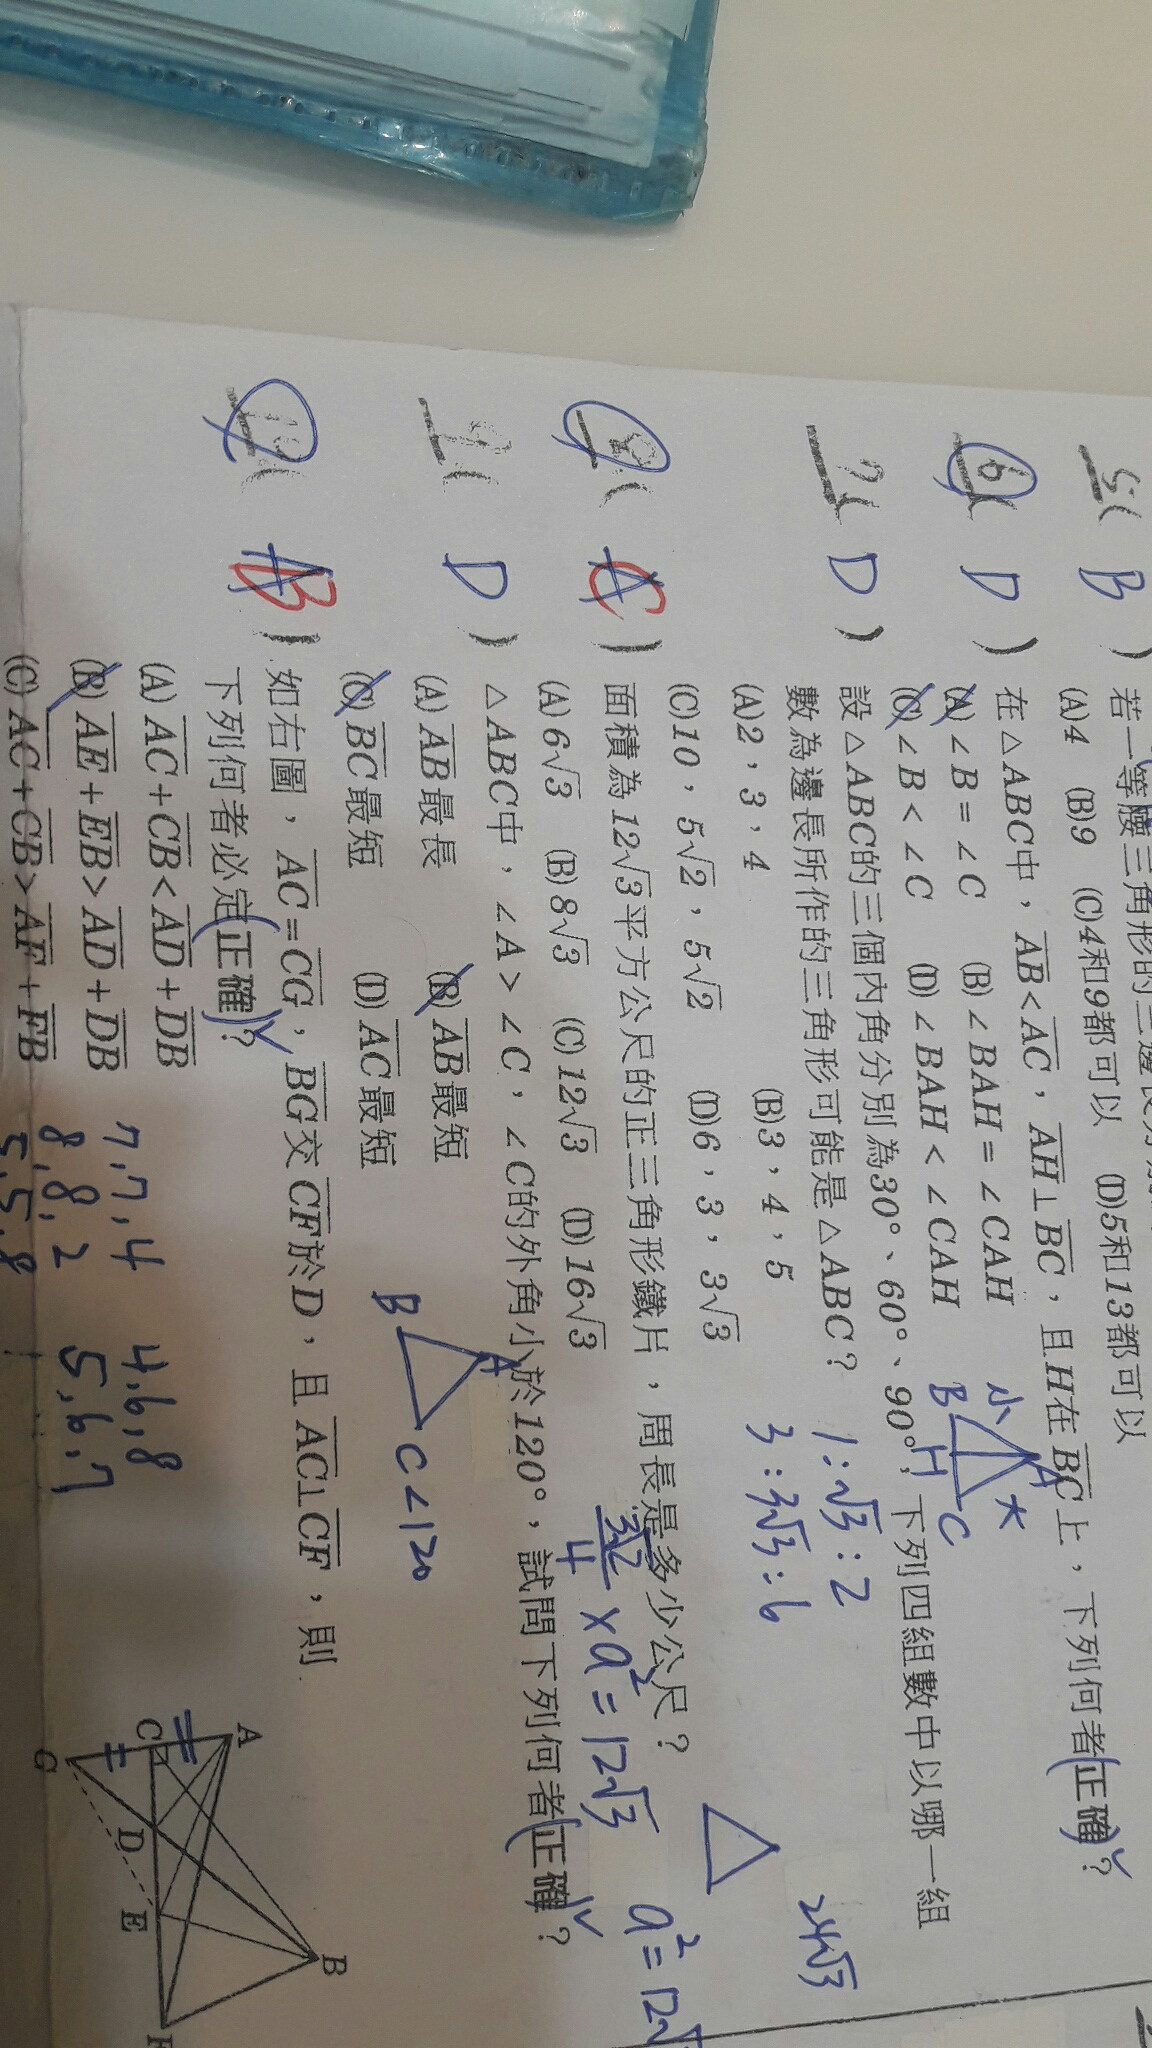 5.( B )
若一等腰三角形的三邊長
(A)4 (B)9 (C)4和9都可以 (D)5和13都可以
6.( D )
在△ABC中，AB<AC，AH⊥BC，且H在BC上，下列何者正確？
(A)∠B=∠C (B)∠BAH=∠CAH
(C)∠B<∠C (D)∠BAH<∠CAH
小 A 大
B H C
7.( D )
設△ABC的三個內角分別為30°、60°、90°，下列四組數中以哪一組
數為邊長所作的三角形可能是△ABC？
(A)2，3，4 (B)3，4，5
(C)10，5√2，5√2 (D)6，3，3√3
1:√3:2
3:3√3:6
24√3
8.( C )
面積為12√3平方公尺的正三角形鐵片，周長是多少公尺？
(A)6√3 (B)8√3 (C)12√3 (D)16√3
4 × a² = 12√3
a² = 12
9.( D )
△ABC中，∠A>∠C，∠C的外角小於120°，試問下列何者正確？
(A)AB最長 (B)AB最短
(C)BC最短 (D)AC最短
A
B C<120
( B )
如右圖，AC=CG，BG交CF於D，且AC⊥CF，則
下列何者必定正確？
(A)AC+CB<AD+DB
(B)AE+EB>AD+DB
(C)AC+CB>AF+FB
7,7,4 4,6,8
8,8,2 5,6,7
5,5,8
A B
C D E F
G